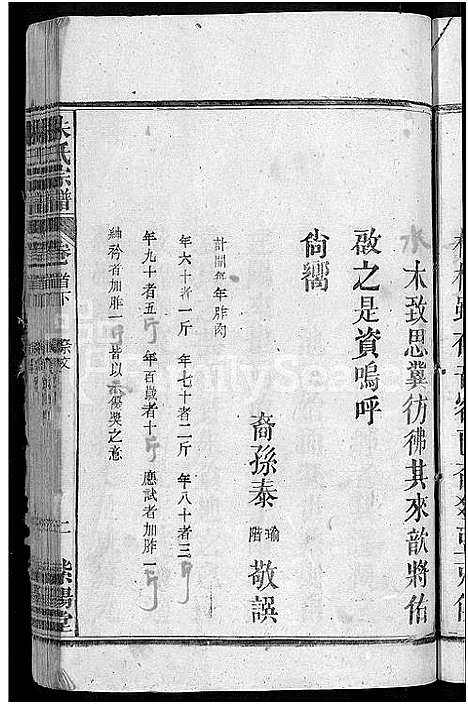 水木致思冀彷彿其來歆將佑
啟之是資嗚呼
尙嚮
裔孫泰瑜階敬譔
計開每年胙肉
年六十者一斤 年七十者二斤 年八十者三斤
年九十者五斤 年百歲者十斤 應試者加胙一斤
紳衿者加胙一斤 皆以示優奬之意
朱氏宗譜 卷首下 祭文 二 紫陽堂